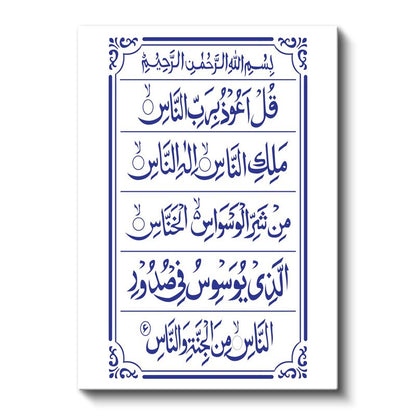 بِسْمِ اللهِ الرَّحْمٰنِ الرَّحِيْمِ
قُلْ اَعُوْذُ بِرَبِّ النَّاسِ ۙ
مَلِكِ النَّاسِ ۙ اِلٰهِ النَّاسِ ۙ
مِنْ شَرِّ الْوَسْوَاسِ ۙ الْخَنَّاسِ ۙ
الَّذِىْ يُوَسْوِسُ فِىْ صُدُوْرِ
النَّاسِ ۙ مِنَ الْجِنَّةِ وَالنَّاسِ